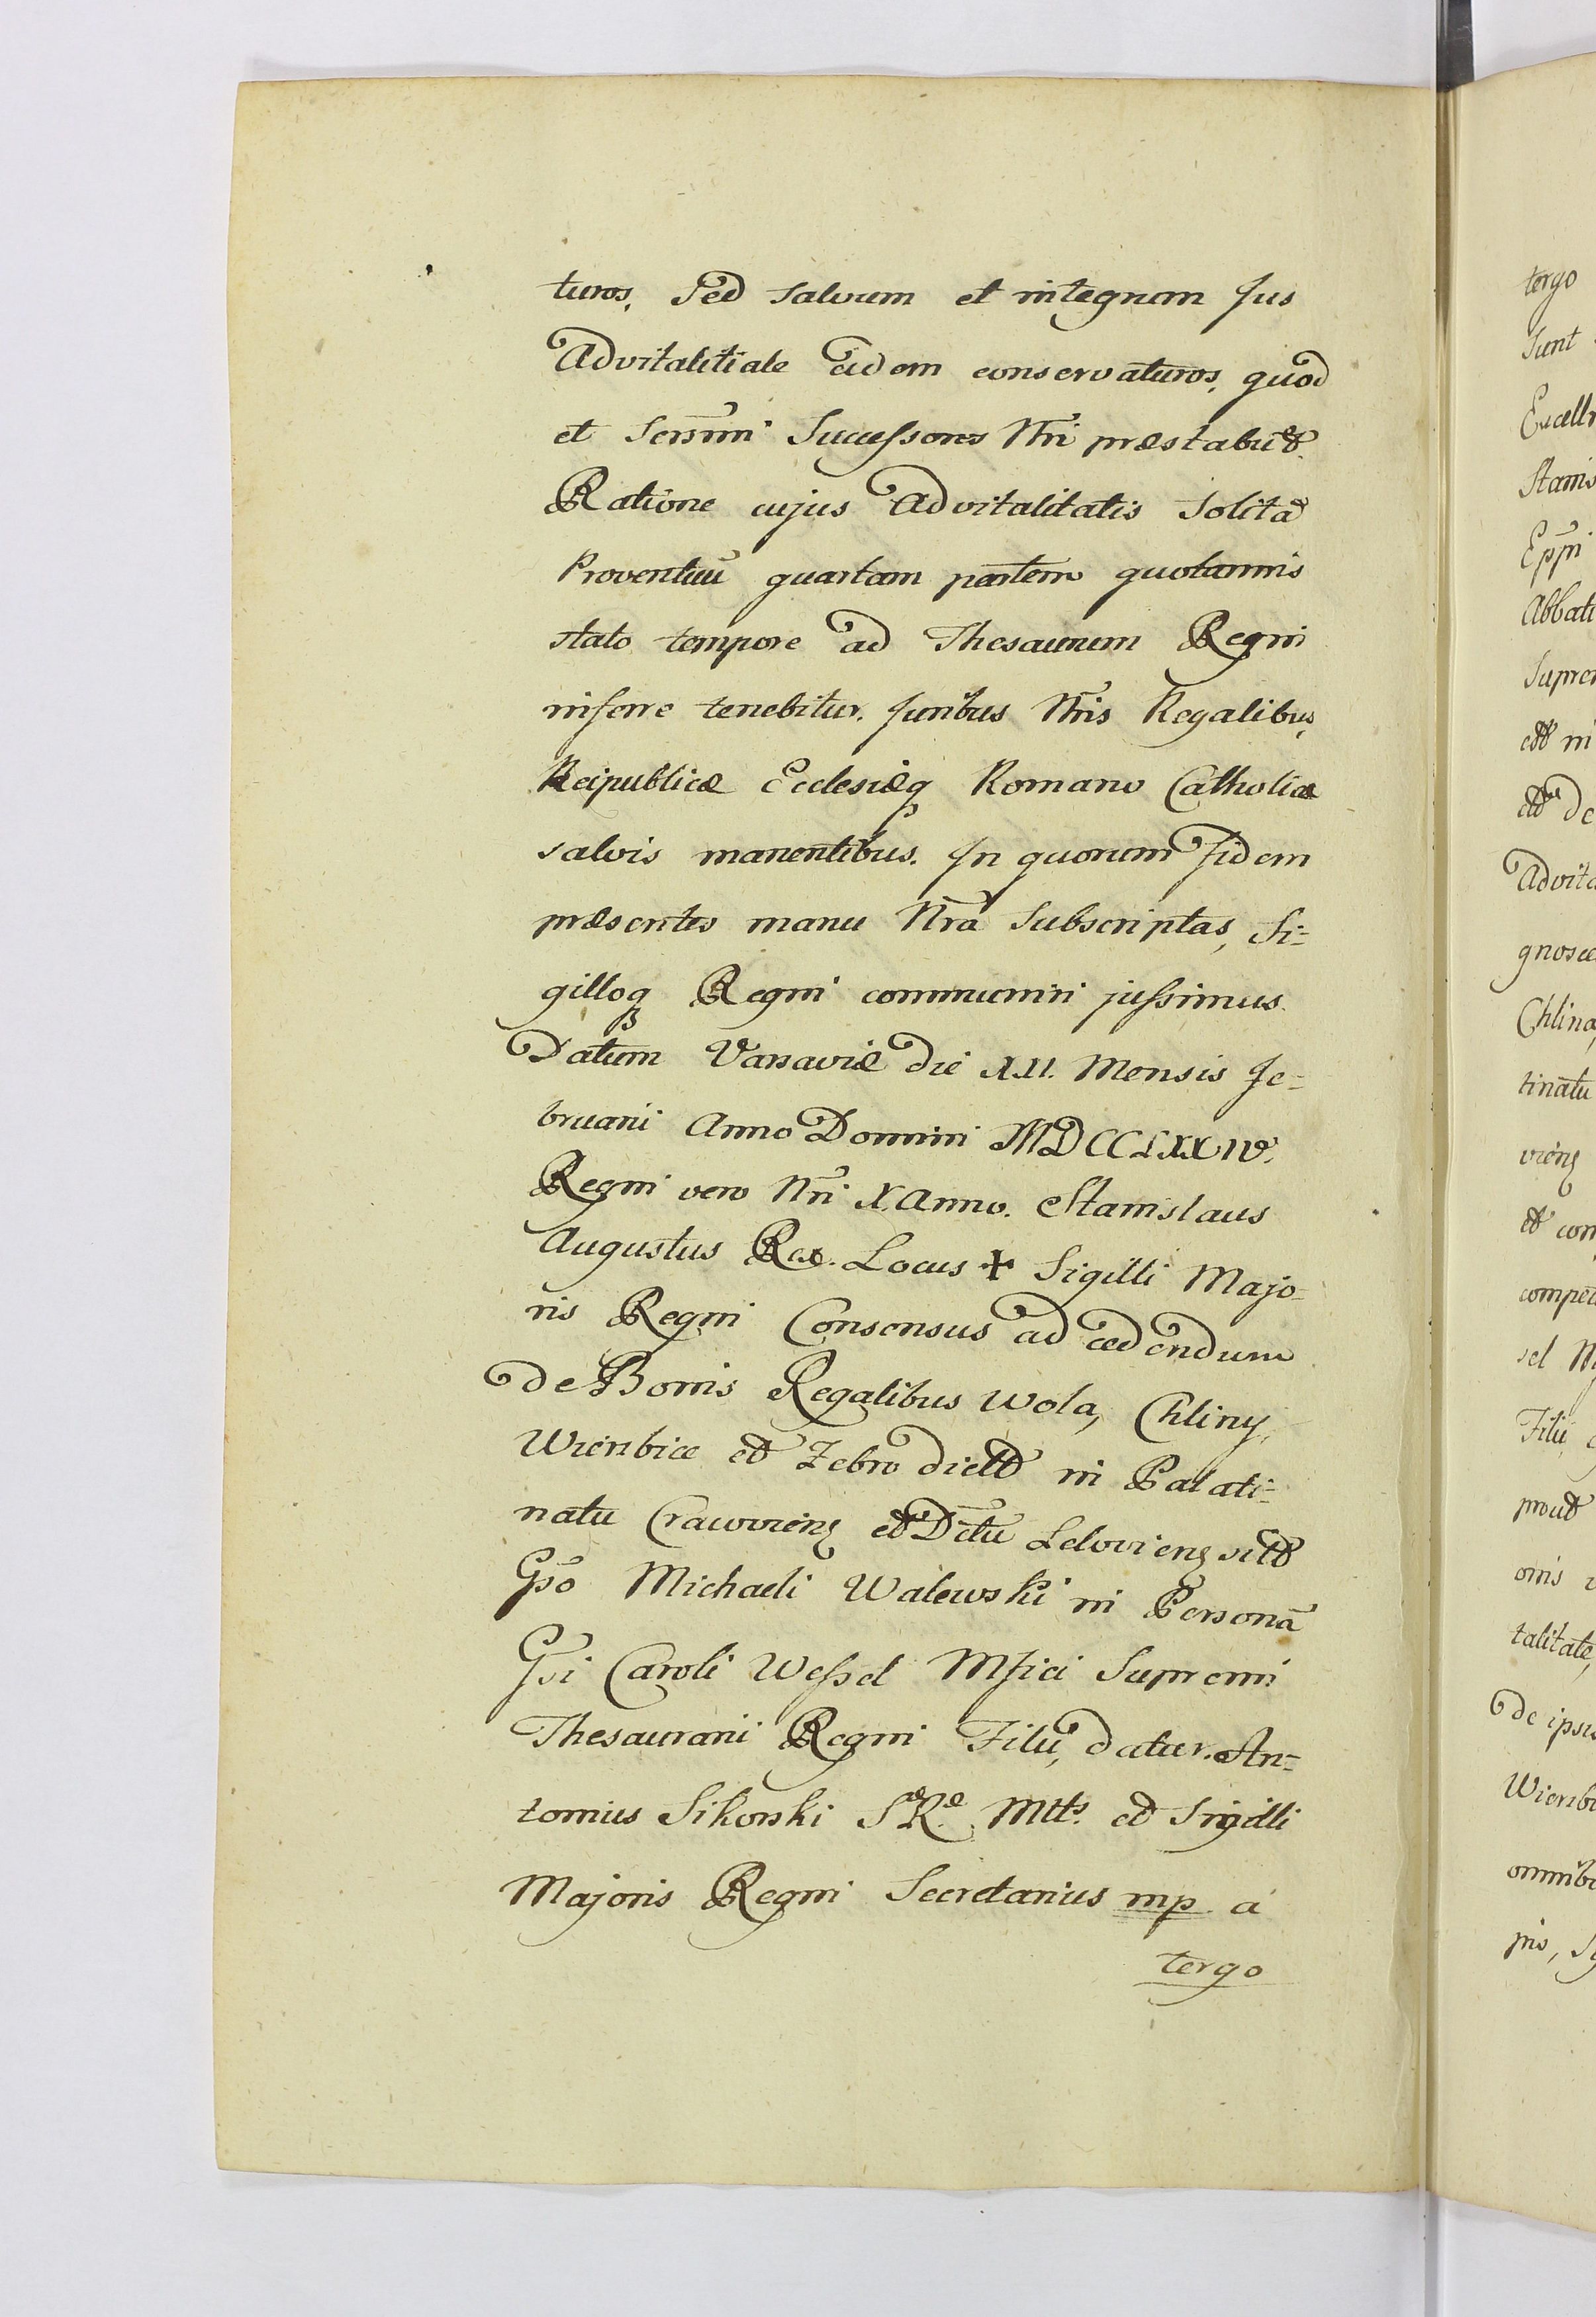 turos. Sed salvum et integrum Jus
Advitalitiale eidem conservaturos, quod
et Serm̃mi Successores Nr̃i præstabũt.
Ratione cujus Advitalitatis solitã
Proventuũ quartam partem quotannis
stato tempore ad Thesaurum Regni
inferre tenebitur. Juribus Nr̃is Regalibus,
Reipublicæ Ecclesiæq Romano Catholicæ
salvis manentibus. In quorum fidem
præsentes manu Nr̃a Subscriptas, Si=
gilloq Regni communiri jussimus.
Datum Varsaviæ die XII. Mensis Fe=
bruarii Anno Domini MDCCLXXIV.
Regni vero Nr̃i X Anno. Stanislaus
Augustus Rex. Locus ✝ Sigilli Majo=
ris Regni Consensus ad cedendum
de Bonis Regalibus Wola, Chliny,
Wierzbice et Zebro dictt in Palati=
natu Cracovieñ et Dctũ Leloviens sitt
Gso Michaeli Walewski in Personã
Gsi Caroli Wessel Mfici Supremi
Thesaurarii Regni Filii, datur. An=
tonius Sikorski S.R. Mtts. et Sigilli
Majoris Regni Secretarius mp. a
tergo
tergo
Sunt
Stanis
Abbati
gnosce
Chlina,
tinatu
et com
Filii
prout
talitate,
de ipsis